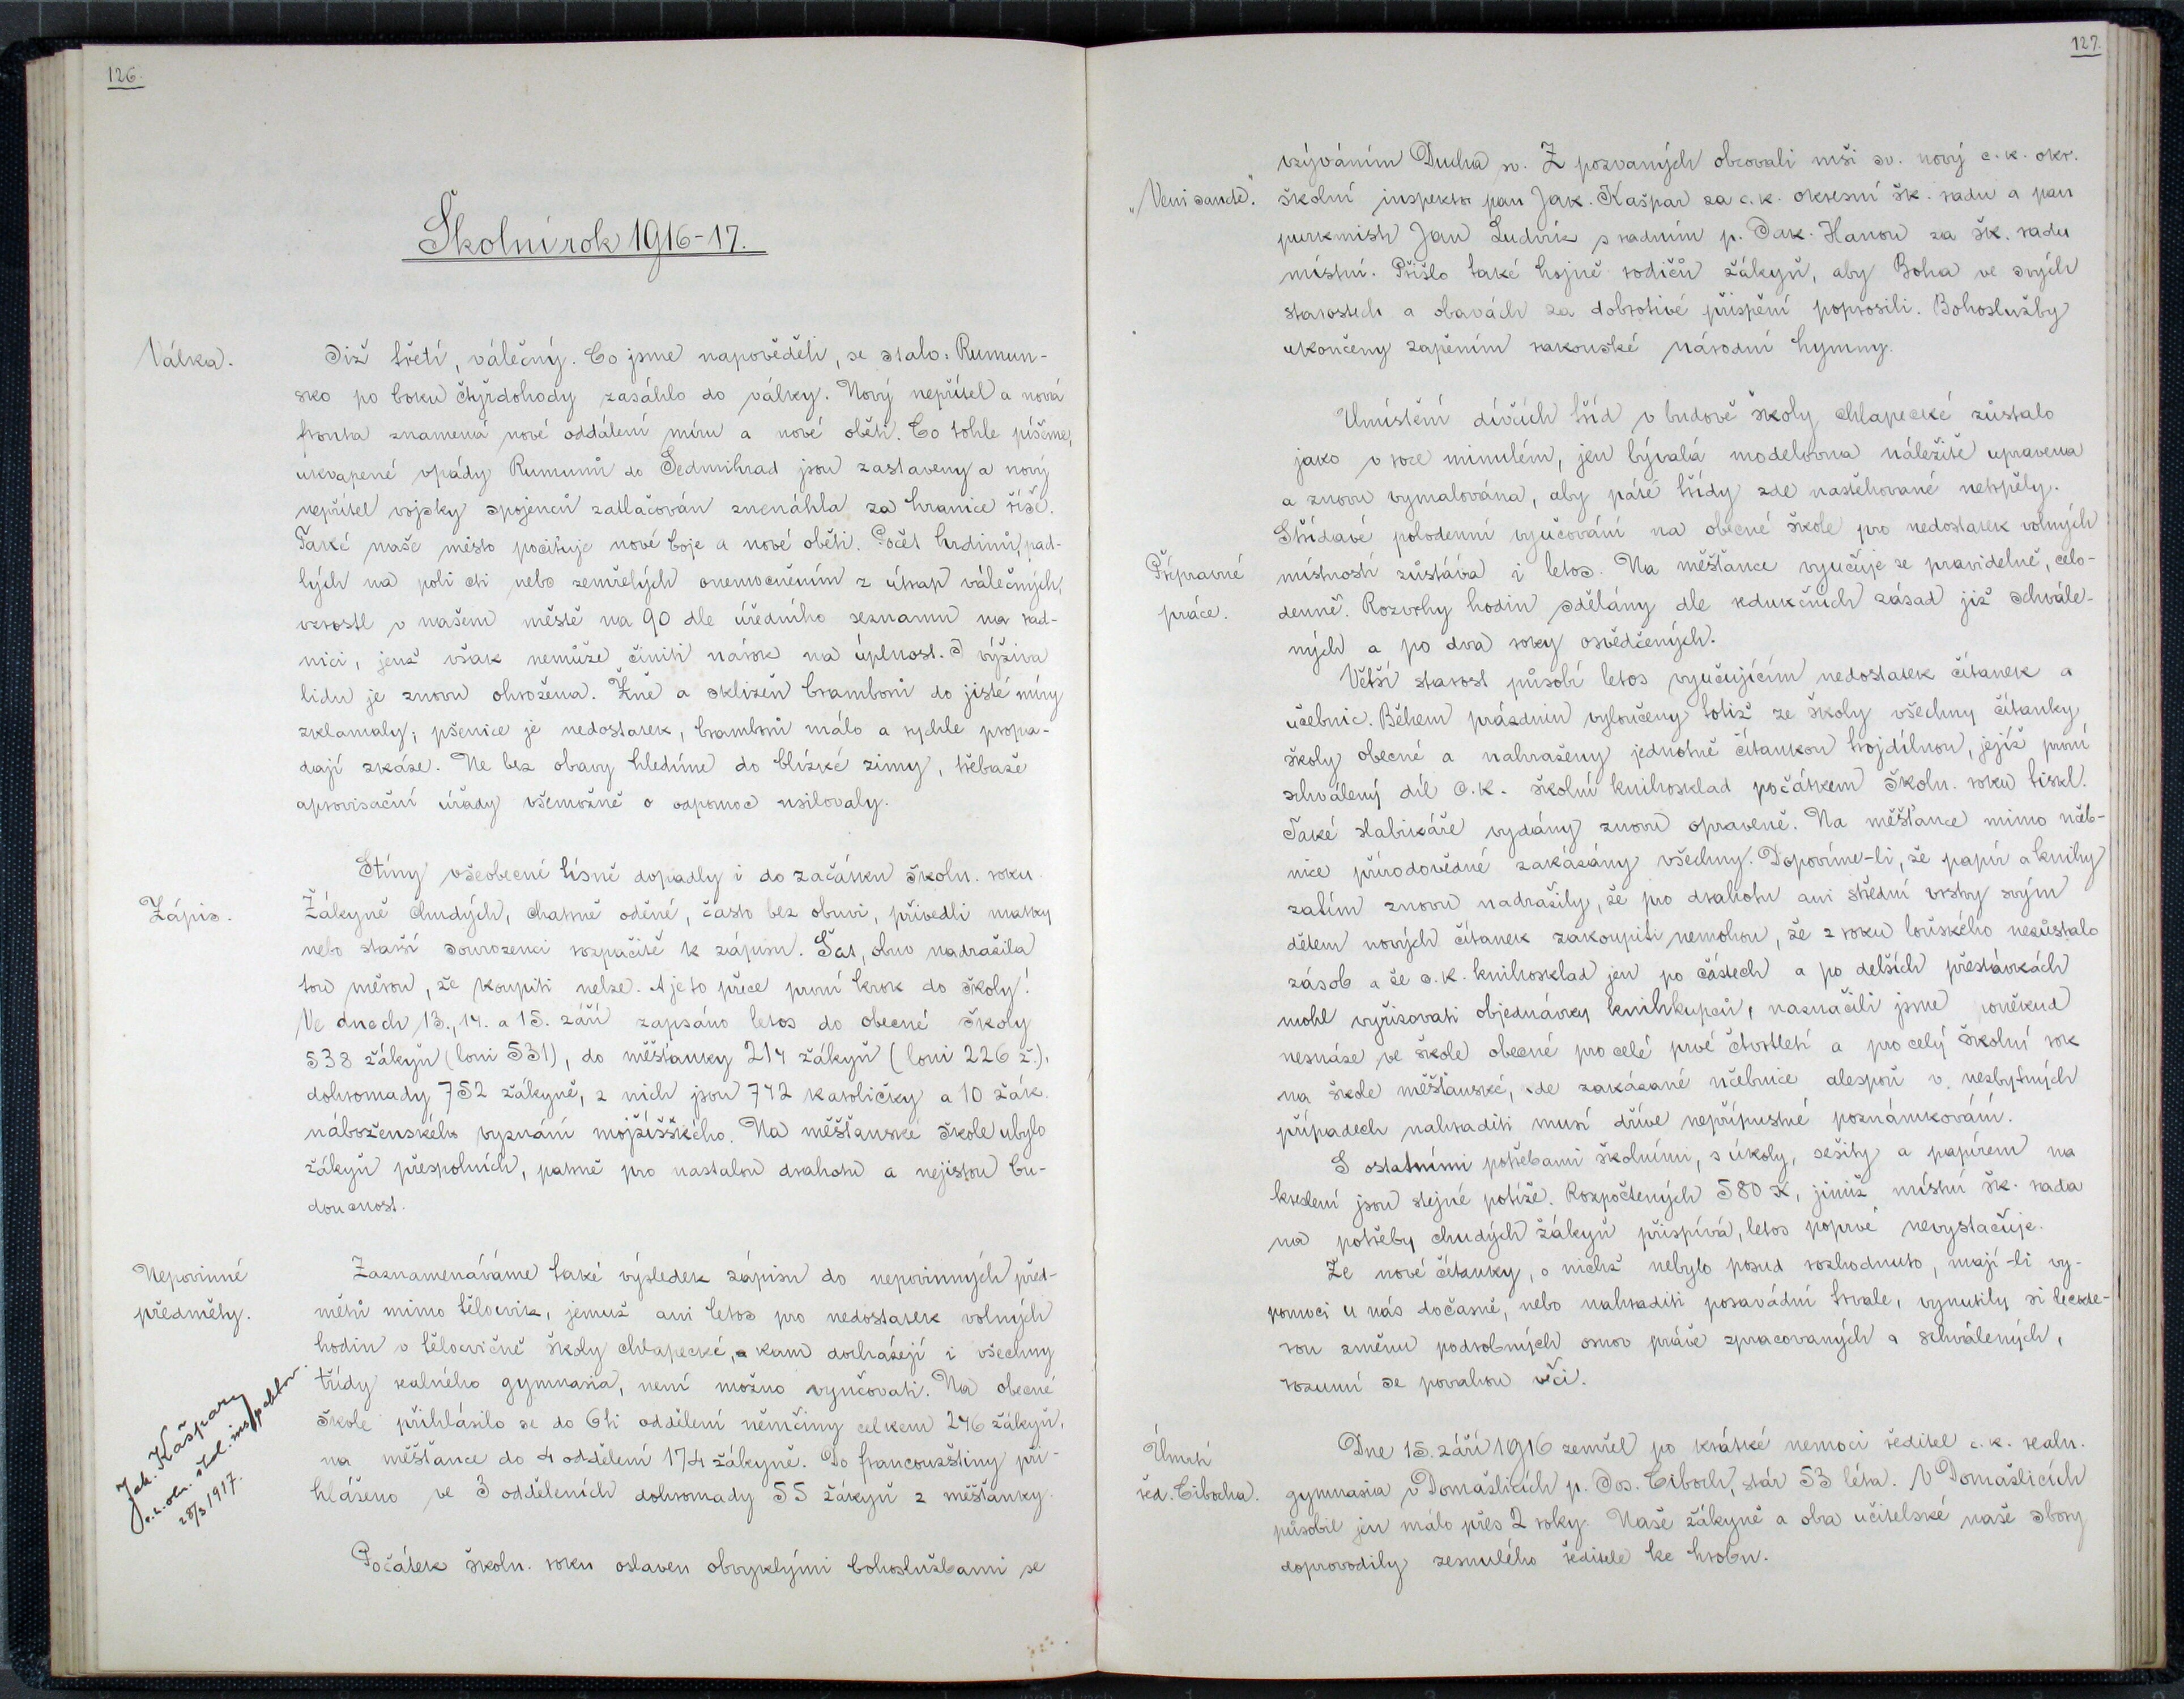 126.
Školní rok 1916-17.
Válka.
Již třetí, válečný. Co jsme napověděli, se stalo: Rumun-
sko po boku čtyřdohody zasáhlo do války. Nový nepřítel a nová
fronta znamená nové oddálení míru a nové oběti. Co tohle píšeme,
ukvapené vpády Rumunů do Sedmihrad jsou zastaveny a nový
nepřítel vojsky spojenců zatlačován znenáhla za hranice říše.
Také naše město pociťuje nové boje a nové oběti. Počet hrdinů, pad-
lých na poli cti nebo zemřelých onemocněním z útrap válečných,
vzrostl v našem městě na 90 dle úředního seznamu na rad-
nici, jenž však nemůže činiti nárok na úplnost. I výživa
lidu je znovu ohrožena. Žně a sklizeň bramborů do jisté míry
zklamaly; pšenice je nedostatek, bramborů málo a rychle propa-
dají zkáze. Ne bez obavy hledíme do blízké zimy, třebaže
aprovisační úřady všemožně o odpomoc usilovaly.
Zápis.
Stíny všeobecné tísně dopadly i do začátku školn. roku.
Žákyně chudých, chatrně oděné, často bez obuvi, přivedli matky
nebo starší sourozenci rozpačitě k zápisu. Šat, obuv nadražila
tou měrou, že koupiti nelze. A je to přece první krok do školy!
Ve dnech 13., 14. a 15. září zapsáno letos do obecné školy
538 žákyň (loni 531), do měšťanky 214 žákyň (loni 226 ž.),
dohromady 752 žákyně, z nich jsou 742 katoličky a 10 žák.
náboženského vyznání mojžíšského. Na měšťanské škole ubylo
žákyň přespolních, patrně pro nastalou drahotu a nejistou bu-
doucnost.
Nepovinné
předměty.
Zaznamenáváme také výsledek zápisu do nepovinných před-
mětů mimo tělocvik, jemuž ani letos pro nedostatek volných
hodin v tělocvičně školy chlapecké, kam docházejí i všechny
třídy reálného gymnasia, není možno vyučovati. Na obecné
škole přihlásilo se do 6ti oddělení němčiny celkem 246 žákyň,
na měšťance do 4 oddělení 174 žákyně. Do francouzštiny při-
hlášeno ve 3 odděleních dohromady 55 žákyň z měšťanky.
Jak. Kašpar
c. k. okr. škol. inspektor
28/3 1917.
Počátek školn. roku oslaven obvyklými bohoslužbami se
127.
„Veni sancte."
vzýváním Ducha sv. Z pozvaných obcovali mši sv. nový c. k. okr.
školní inspektor pan Jak. Kašpar za c. k. okresní šk. radu a pan
purkmistr Jan Ludvík s radním p. Jak. Hanou za šk. radu
místní. Přišlo také hojně rodičů žákyň, aby Boha ve svých
starostech a obavách za dobrotivé přispění poprosili. Bohoslužby
ukončeny zapěním rakouské národní hymny.
Přípravné
práce.
Umístění dívčích tříd v budově školy chlapecké zůstalo
jako v roce minulém, jen bývalá modelovna náležitě upravena
a znovu vymalována, aby páté třídy zde nastěhované netrpěly.
Střídavé polodenní vyučování na obecné škole pro nedostatek volných
místností zůstává i letos. Na měšťance vyučuje se pravidelně, celo-
denně. Rozvrhy hodin sdělány dle redukčních zásad již schvále-
ných a po dva roky osvědčených.
Větší starost působí letos vyučujícím nedostatek čítanek a
učebnic. Během prázdnin vyloučeny totiž ze školy všechny čítanky
školy obecné a nahraženy jednotně čítankou trojdílnou, jejíž první
schválený díl c. k. školní knihosklad počátkem školn. roku tiskl.
Také slabikáře vydány znovu opraveně. Na měšťance mimo učeb-
nice přírodovědné zakázány všechny. Dopovíme-li, že papír a knihy
zatím znovu nadražily, že pro drahotu ani střední vrstvy svým
dětem nových čítanek zakoupiti nemohou, že z roku loňského nezůstalo
zásob a že c. k. knihosklad jen po částech a po delších přestávkách
mohl vyřizovati objednávky knihkupců, naznačili jsme poněkud
nesnáze ve škole obecné pro celé prvé čtvrtletí a pro celý školní rok
na škole měšťanské, kde zakázané učebnice alespoň v nezbytných
případech nahraditi musí dříve nepřípustné poznámkování.
S ostatními potřebami školními, s úkoly, sešity a papírem na
kreslení jsou stejné potíže. Rozpočtených 580 K, jimiž místní šk. rada
na potřeby chudých žákyň přispívá, letos poprvé nevystačuje.
Že nové čítanky, o nichž nebylo posud rozhodnuto, mají-li vy-
pomoci u nás dočasně, nebo nahraditi posavádní trvale, vynutily si
rou změnu podrobných osnov práce zpracovaných a schválených,
rozumí se povahou věci.
Úmrtí
řed. Cibocha.
Dne 15. září 1916 zemřel po krátké nemoci ředitel c. k. realn.
gymnasia v Domažlicích p. Jos. Ciboch, stár 53 léta. V Domažlicích
působil jen málo přes 2 roky. Naše žákyně a oba učitelské naše sbory
doprovodily zesnulého ředitele ke hrobu.